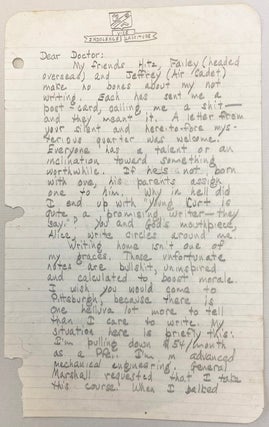 VIS
INDOLENCE LASSITUDE
Dear Doctor:
My friends Hitz, Failey (headed
overseas) and Jeffrey (Air Cadet)
make no bones about my not
writing. Each has sent me a
post-card, calling me a shit—
and they meant it. A letter from
your silent and here-to-fore mys-
terious quarter was welcome.
Everyone has a talent or an
inclination toward something
worthwhile. If he is not born
with one, his parents assign
one to him. Why in hell did
I end up with "Young Curt is
quite a promising writer—they
say." You and God's mouthpiece,
Alice, write circles around me.
Writing home isn't one of
my graces. Those unfortunate
notes are bullshit, uninspired
and calculated to boost morale.
I wish you would come to
Pittsburgh, because there is
one helluva lot more to tell
than I care to write. My
situation here is briefly this:
I'm pulling down $54/month
as a Pfc. I'm in advanced
mechanical engineering. General
Marshall requested that I take
this course. When I balked